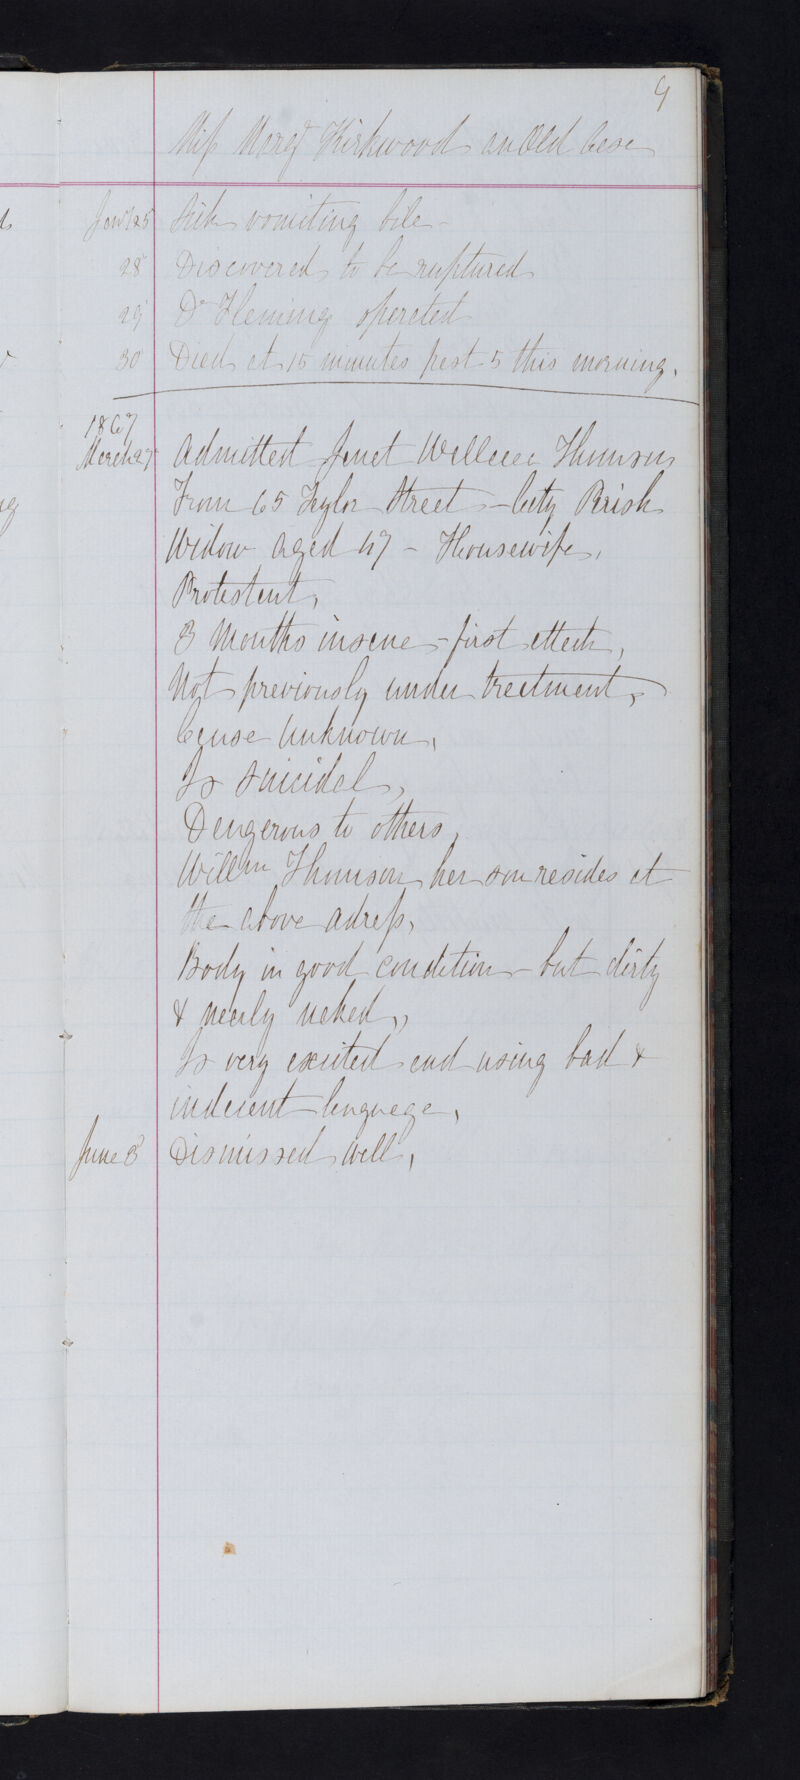 9
Miss Margt Kirkwood an Old Case
Jany 25 Sick vomiting bile -
28 Discovered to be ruptured
29 Dr Fleming operated
30 Died at 15 minutes past 5 this morning.
1867
March 27 Admitted Janet Wallace Thomson
From 65 Taylor Street - City Parish
Widow aged 47 - Housewife,
Protestant,
3 Months insane - first attack,
Not previously under treatment,
Cause Unknown,
Is Suicidal,
Dangerous to others,
Willm Thomson her son resides at
the above adress,
Body in good condition - but dirty
& nearly naked,
Is very excited and using bad &
indecent language,
June 8 Dismissed Well,